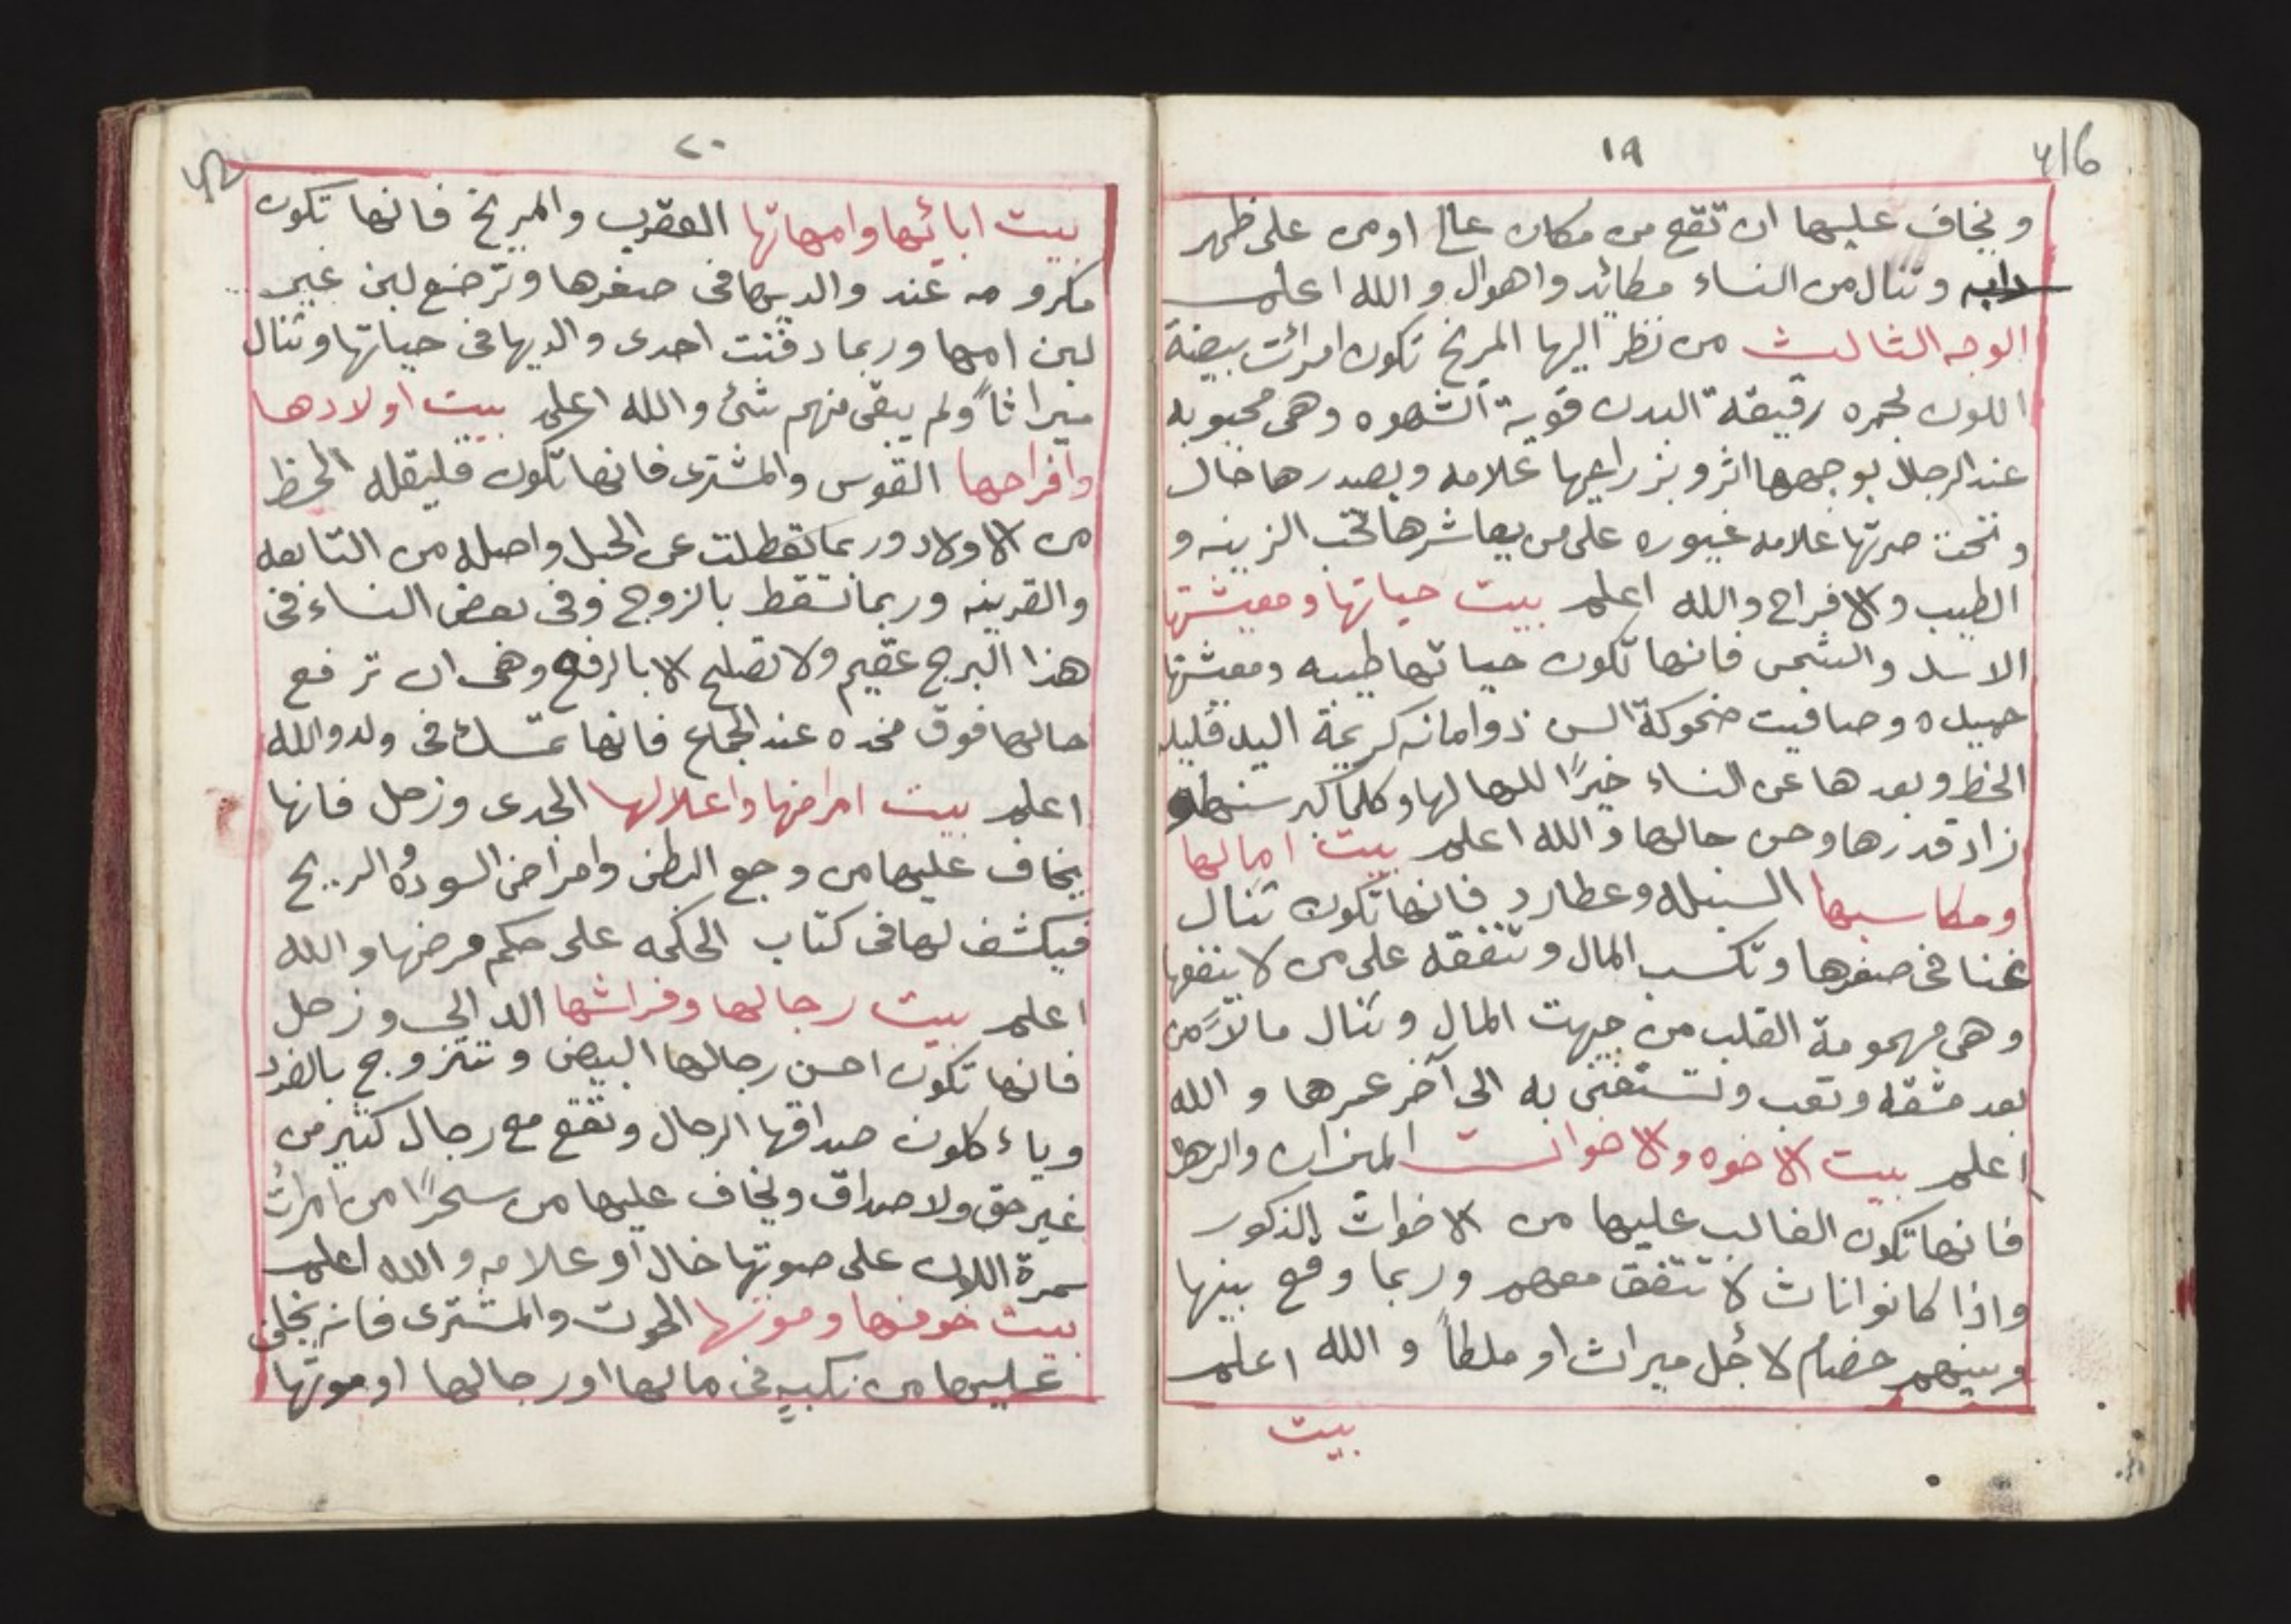 ١٩
ويخاف عليها ان تقع من مكان عال او من على ظهر
دابه وتنال من النساء مكائد واهوال والله اعلم
الوجه الثالث من نظر اليها المريخ تكون امرائت بيضة
اللون لحمره رقيقة البدن قوية الشهوه وهى محبوبه
عند الرجال بوجهها اثر وبزراعيها علامه وبصدرها خال
وتحت صرتها علامه غيوره على من يعاشرها تحب الزينه و
الطيب والافراح والله اعلم بيت حياتها ومعيشتها
الاسد والشمس فانها تكون حياتها طيبه ومعيشتها
جميله وصافيت ضحوكة السن ذو امانه كريمة اليد قليله
الحظ وبعدها عن النساء خيرًا لها وكلما كبر سنها
زاد قدرها وحسن حالها والله اعلم بيت امالها
ومكاسبها السنبله وعطارد فانها تكون تنال
غنا فى صغرها وتكسب المال وتنفقه على من لا ينفعها
وهى مهمومة القلب من جهت المال وتنال مالاً من
بعد مشقه وتعب وتستغنى به الى آخر عمرها والله
اعلم بيت الاخوه والاخوات الميزان والزهره
فانها تكون الغالب عليها من الاخوات الذكور
واذا كانوا اناث لا تتفق معهم وربما وقع بينها
وبينهم خصام لاجل ميراث او ملطاً والله اعلم
بيت
٢٠
بيت ابائها وامهاتها العقرب والمريخ فانها تكون
مكرومه عند والديها فى صغرها وترضع لبن غير
لبن امها وربما دفنت احدى والديها فى حياتها وتنال
ميراثاً ولم يبقى منهم شئ والله اعلم بيت اولادها
وافراحها القوس والمشترى فانها تكون قليلة الحظ
من الاولاد وربما تعطلت عن الحبل واصله من التابعه
والقرينه وربما تسقط بالزوج وفى بعض النساء فى
هذا البرج عقيم ولا تصلح الا بالرفع وهى ان ترفع
حالها فوق مخده عند الجماع فانها تمسك فى ولد والله
اعلم بيت امراضها واعلالها الجدى وزحل فانها
يخاف عليها من وجع البطن وامراض السوده الريح
فيكشف لها فى كتاب الحكمه على حكم مرضها والله
اعلم بيت رجالها وفراشها الدالي وزحل
فانها تكون احسن رجالها البيض وتتزوج بالفرد
وياءكلون صداقها الرجال وتقع مع رجال كثير من
غير حق ولا صداق ويخاف عليها من سحرًا من امرات
سمرة اللون على صوتها خال او علامه والله اعلم
بيت خوفها وموتها الحوت والمشترى فانه يخاف
عليها من نكبه فى مالها او رجالها او موتها